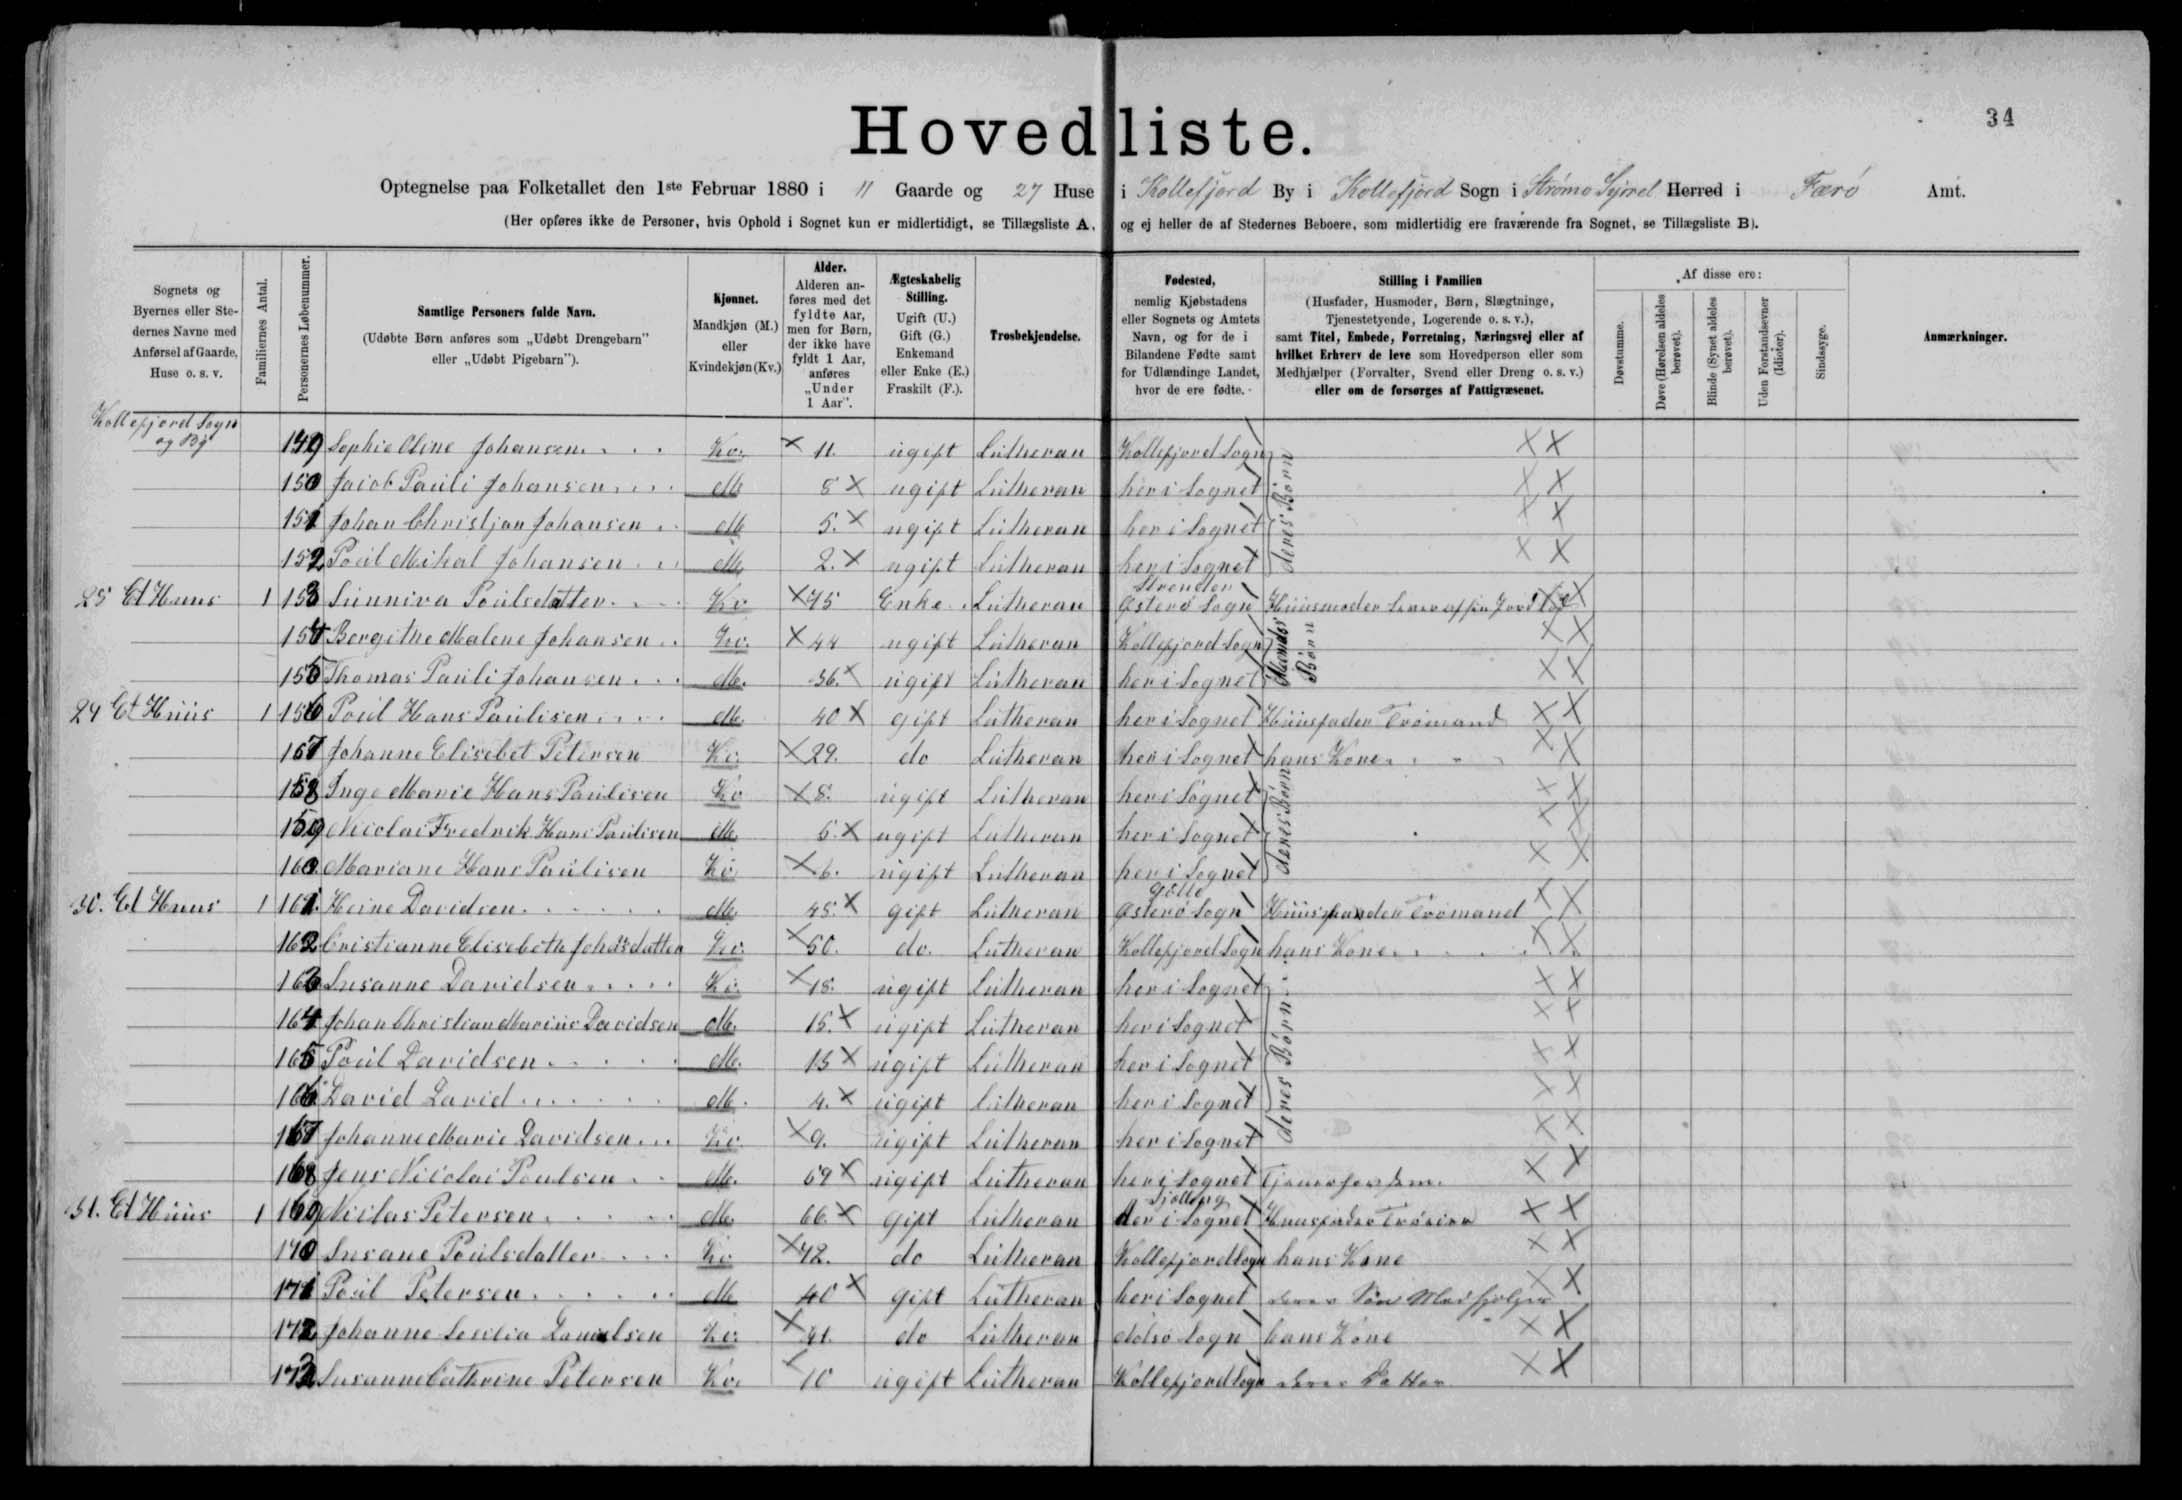 34
Hovedliste.
Optegnelse paa Folketallet den 1ste Februar 1880 i 11 Gaarde og 27 Huse i Kollefjord By i Kollefjord Sogn i Strømø Syssel Herred i Færø Amt.
(Her opføres ikke de Personer, hvis Ophold i Sognet kun er midlertidigt, se Tillægsliste A, og ej heller de af Stedernes Beboere, som midlertidig ere fraværende fra Sognet, se Tillægsliste B).
Sognets og Byernes eller Stedernes Navne med Anførsel af Gaarde, Huse o. s. v.
Familiernes Antal.
Personernes Løbenummer.
Samtlige Personers fulde Navn.
(Udøbte Børn anføres som „Udøbt Drengebarn” eller „Udøbt Pigebarn”).
Kjønnet.
Mandkjøn (M.) eller Kvindekjøn (Kv.)
Alder.
Alderen anføres med det fyldte Aar, men for Børn, der ikke have fyldt 1 Aar, anføres „Under 1 Aar”.
Ægteskabelig Stilling.
Ugift (U.) Gift (G.) Enkemand eller Enke (E.) Fraskilt (F.).
Trosbekjendelse.
Fødested,
nemlig Kjøbstadens eller Sognets og Amtets Navn, og for de i Bilandene Fødte samt for Udlændinge Landet, hvor de ere fødte.
Stilling i Familien
(Husfader, Husmoder, Børn, Slægtninge, Tjenestetyende, Logerende o. s. v.),
samt Titel, Embede, Forretning, Næringsvej eller af hvilket Erhverv de leve som Hovedperson eller som Medhjælper (Forvalter, Svend eller Dreng o. s. v.) eller om de forsørges af Fattigvæsenet.
Af disse ere:
Døvstumme.
Døve (Hørelsen aldeles berøvet).
Blinde (Synet aldeles berøvet).
Uden Forstandsevner (Idioter).
Sindssyge.
Anmærkninger.
Kollefjord Sogn
og By
149 Sophie Oline Johansen Kv. × 11. ugift Lutheran Kollefjord Sogn × ×
150 Jacob Pauli Johansen M 8 × ugift Lutheran her i Sognet × ×
151 Johan Christjan Johansen M 5. × ugift Lutheran her i Sognet × ×
152 Poul Mikal Johansen M 2. × ugift Lutheran her i Sognet × ×
deres Børn
Strender
Et Huus 1 153 Sunniva Poulsdatter Kv × 75 Enke Lutheran Østerø Sogn Huusmoder × ×
154 Bergithe Malene Johansen Kv. × 44 ugift Lutheran Kollefjord Sogn × ×
155 Thomas Pauli Johansen M. 36. × ugift Lutheran her i Sognet × ×
Børn
29 Et Huus 1 156 Poul Hans Paulisen M 40 × gift Lutheran her i Sognet Huusfader Tromand × ×
157 Johanne Elisebet Petersen Kv. × 29. do Lutheran her i Sognet hans Kone × ×
158 Inge Marie Hans Paulisen Kv × 8. ugift Lutheran her i Sognet × ×
159 Nicolai Fredrik Hans Paulisen M × ugift Lutheran her i Sognet × ×
160 Mariane Hans Paulisen Kv × 6. ugift Lutheran her i Sognet × ×
deres Børn
Gøtte
30. Et Huus 1 161. Heine Davidsen M. 45. × gift Lutheran Østerø Sogn Huusfader Tromand × ×
162 Cristianne Elisebeth Kv. × 50. do. Lutheran Kollefjord Sogn hans Kone × ×
163 Susanne Davidsen Kv. × 18. ugift Lutheran her i Sognet × ×
164 Johan Christian Marius Davidsen M. 15. × ugift Lutheran her i Sognet × ×
165 Poul Davidsen M. 13 × ugift Lutheran her i Sognet × ×
166 David David M. 4. × ugift Lutheran her i Sognet × ×
167 Johanne Marie Davidsen Kv. × 9. ugift Lutheran her i Sognet × ×
deres Børn
168 Jens Nicolai Poulsen M. 69 × ugift Lutheran her i Sognet × ×
31. Et Huus 1 169 Niclas Petersen M. 66. × gift Lutheran her i Sognet Huusfader × ×
170 Susane Poulsdatter Kv × 72. do Lutheran Kollefjord Sogn hans Kone × ×
171 Poul Petersen M 40 × gift Lutheran her i Sognet deres Søn × ×
172 Johanne Kv. × 41. do Lutheran Sogn hans Kone × ×
173 Susanne Cathrine Petersen Kv. × 10 ugift Lutheran Kollefjord Sogn deres Datter × ×